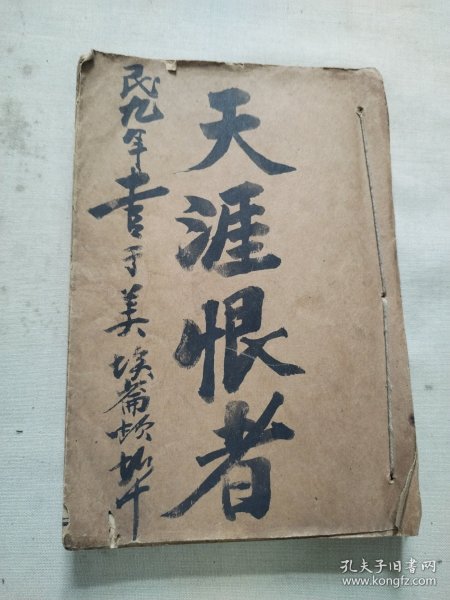 天涯恨者
民九年書于美埃崙頓埠
孔夫子旧书网
www.kongfz.com